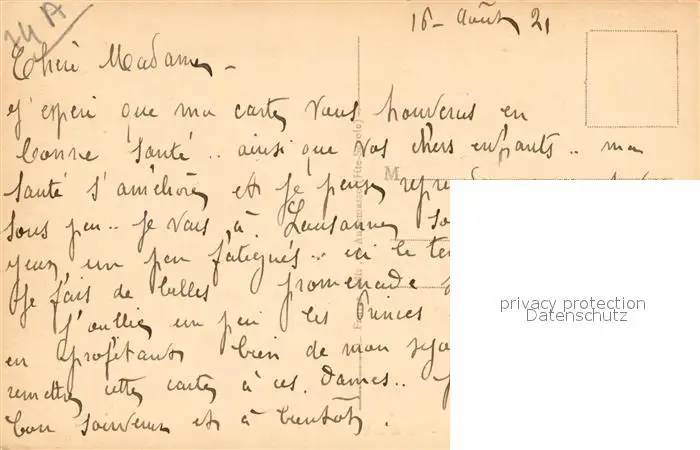 24 A
16 - Août 21
Chère Madame -
J'espère que ma carte vous trouverai en
bonne santé .. ainsi que vos chers enfants .. ma
santé s'améliore et je pense repre
sous peu .. Je vais à Lausanne
yeux un peu fatigués .. ici le te
Je fais de belles promenade
J'oublie un peu les Princes
en profitant bien de mon sejo
remettre cette carte à ces Dames ..
bon souvenir et à bientôt .
M
privacy protection
Datenschutz